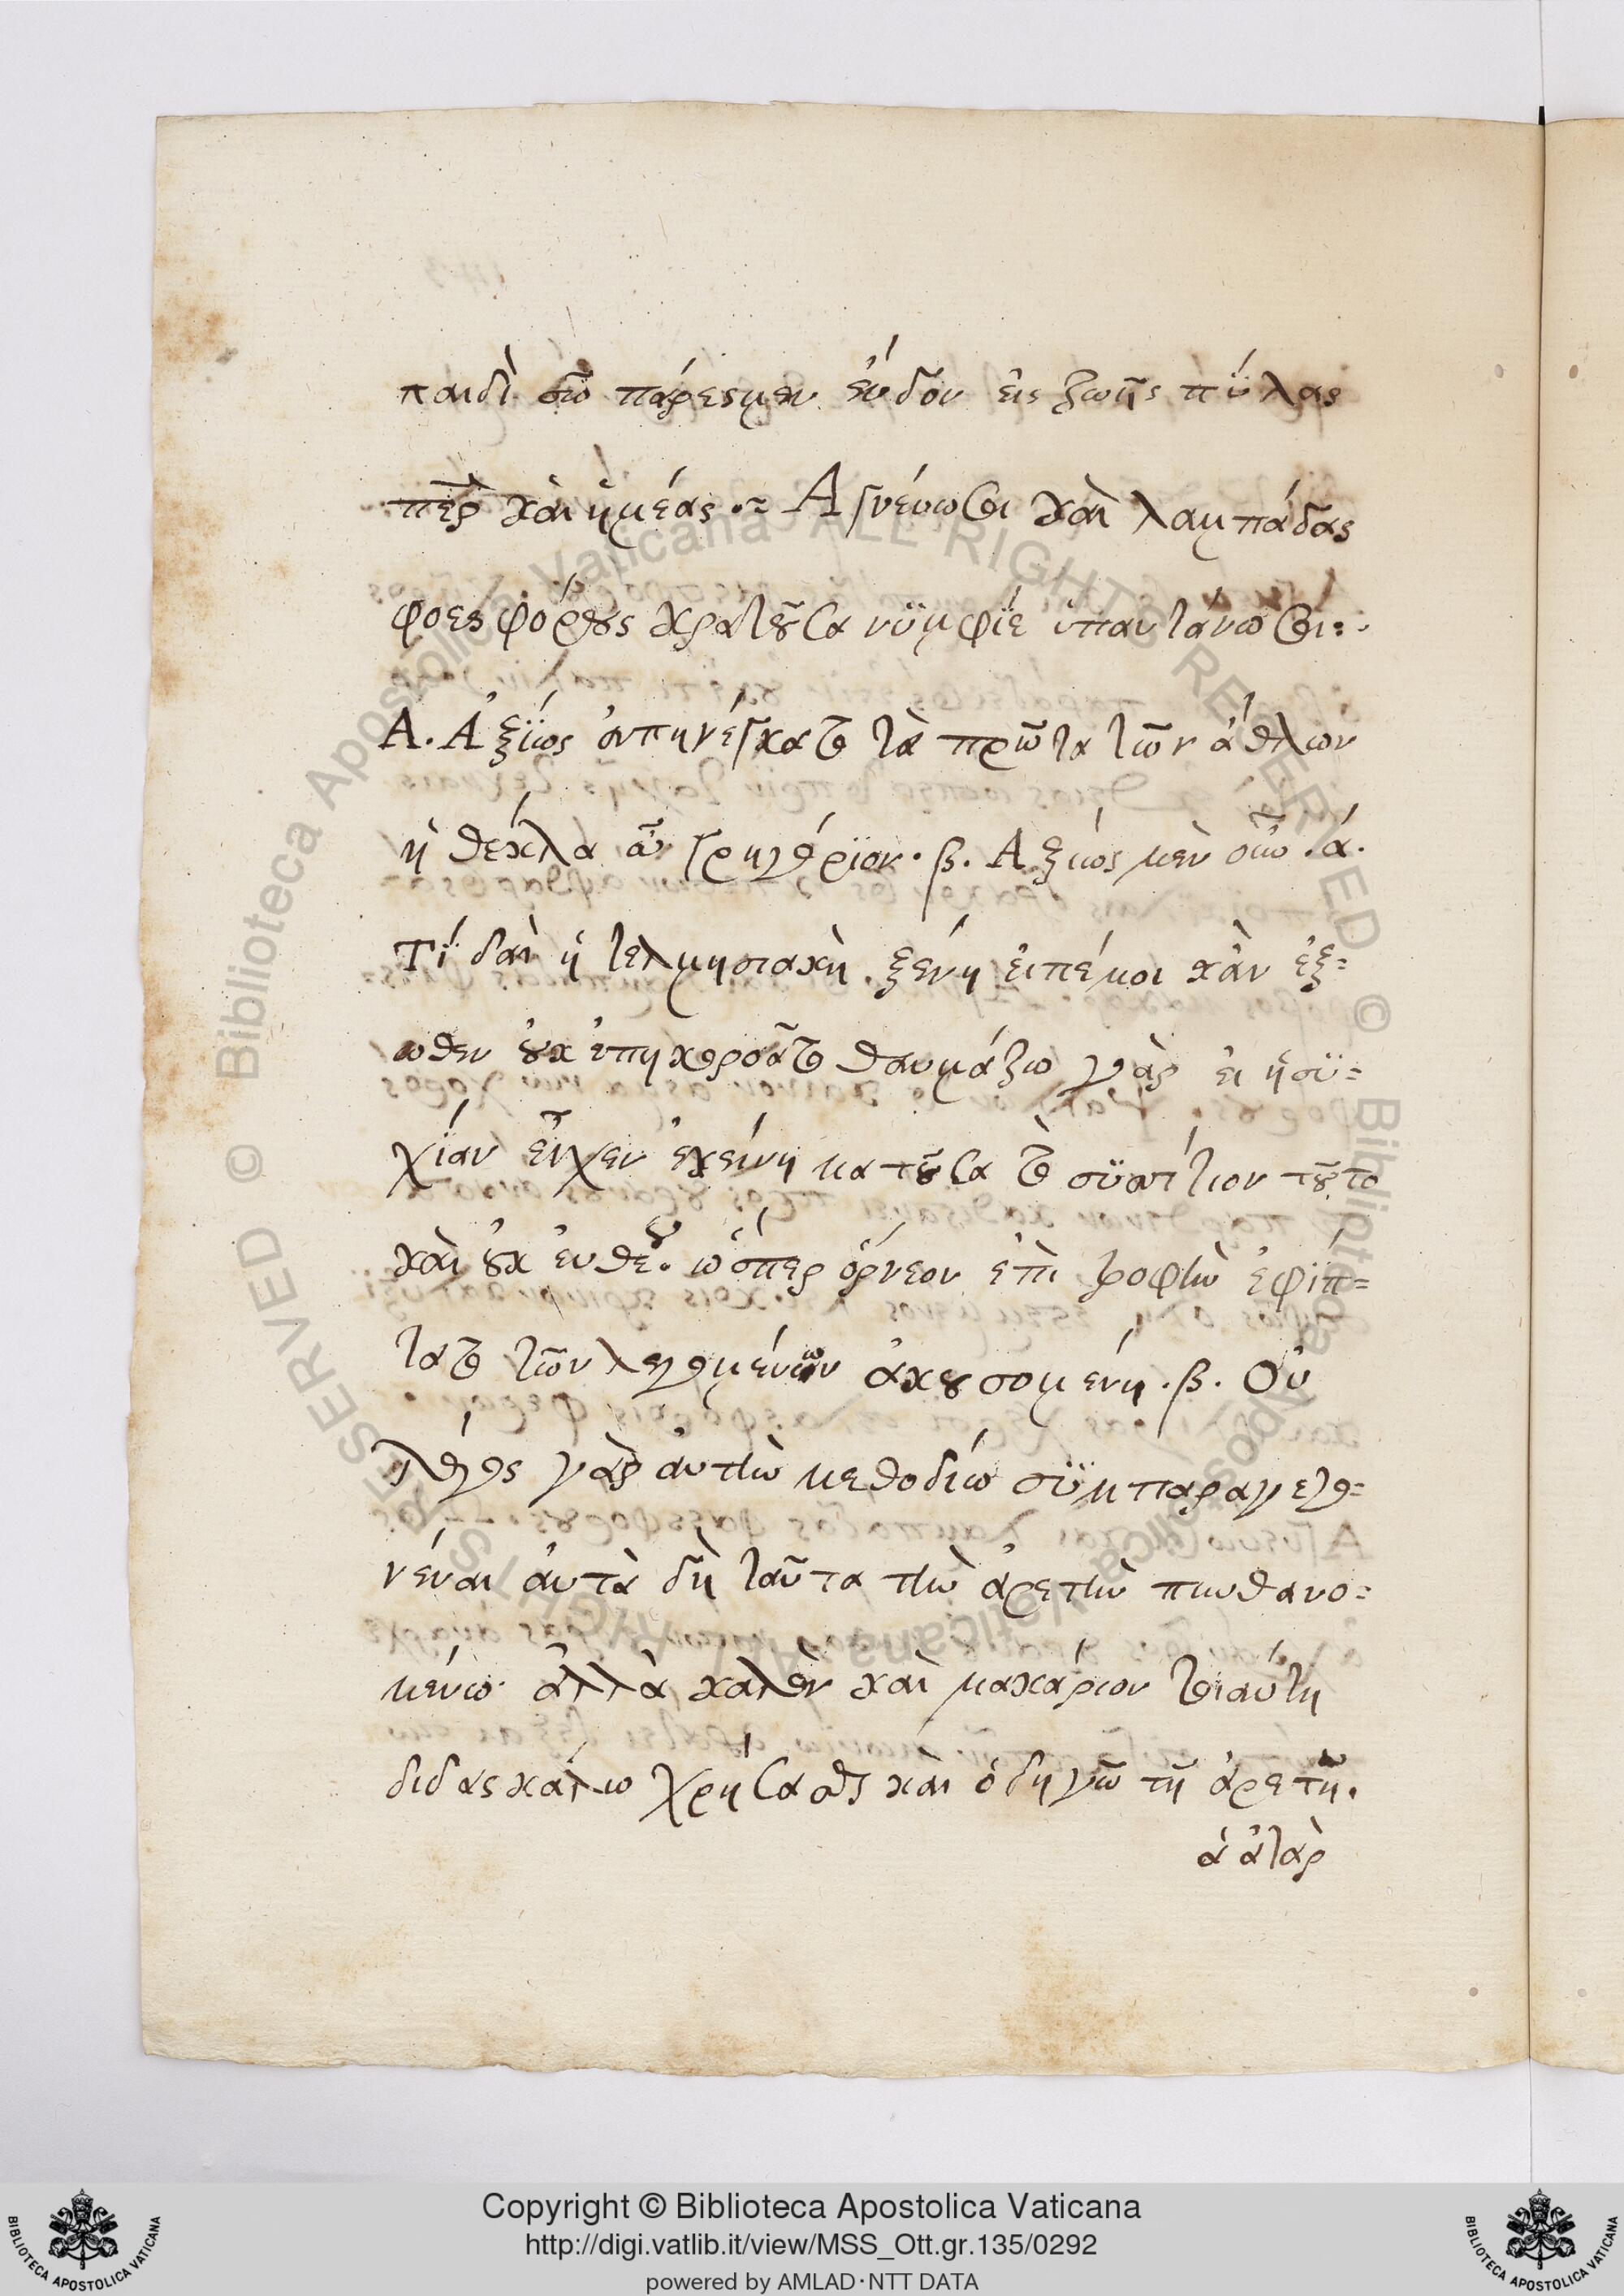 παιδὶ σῶ πάρεσμεν ἔνδον εἰς ζωῆς πύλας
περ καὶ ἡμέας :~ Ἁγνεύω σοι καὶ λαμπάδας
φαεσφόρους κρατοῦσα νυμφίε ὑπαντάνω σοι :
Α. Ἀξίως ἀπηνέγκατο τὰ πρῶτα τῶν ἄθλων
ἡ Θέκλα ὦ Γρηγόριον. β. Ἀξίως μὲν οὖν. ά.
Τί δαὶ ἡ τελμησιακὴ ξένη εἰπέ μοι κἂν ἔξ=
ωθεν οὐχ ὑπηκροᾶτο θαυμάζω γὰρ εἰ ἡσυ=
χίαν εἶχεν ἐκείνη ματοῦσα τὸ συσσίτιον τοῦτο
καὶ οὐκ εὐθὺς ὥσπερ ὄρνεον ἐπὶ τροφὴν ἐφίπ=
τατο τῶν λεγομένων ἀκουσομένη. β. Οὐ
λόγος γὰρ αὐτὴν μεθοδίω συμπαραγεγο=
νέναι αὐτὰ δὴ ταῦτα τὴν ἀρετὴν πυνθανο=
μένω ἀλλὰ καλὸν καὶ μακάριον τοιαύτη
διδασκάλω χρήσασθαι καὶ ὁδηγῶ τῆ ἀρετῆ.
ά ἀτὰρ
Copyright © Biblioteca Apostolica Vaticana
http://digi.vatlib.it/view/MSS_Ott.gr.135/0292
powered by AMLAD·NTT DATA
BIBLIOTECA APOSTOLICA VATICANA
BIBLIOTECA APOSTOLICA VATICANA